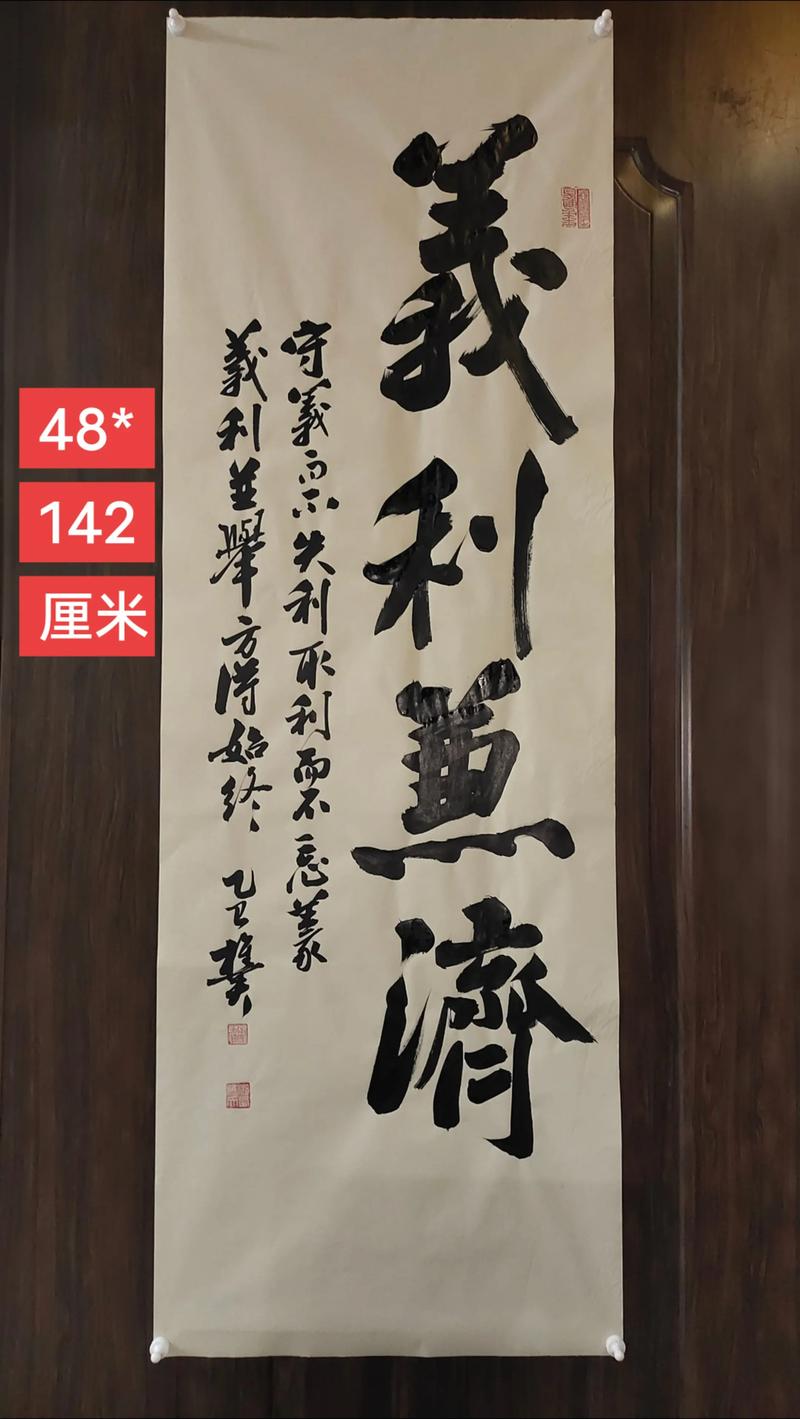 義利兼濟
守義而不失利取利而不忘義
義利並舉方得始終
乙巳
48*
142
厘米